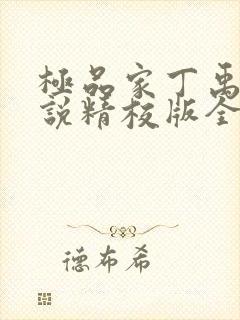 極品家丁禹
說精校版全
德布希